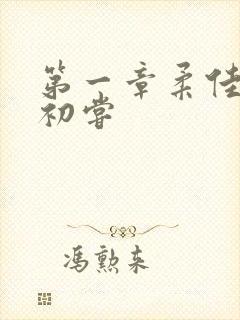 第一章柔佳
初嘗
冯勲来